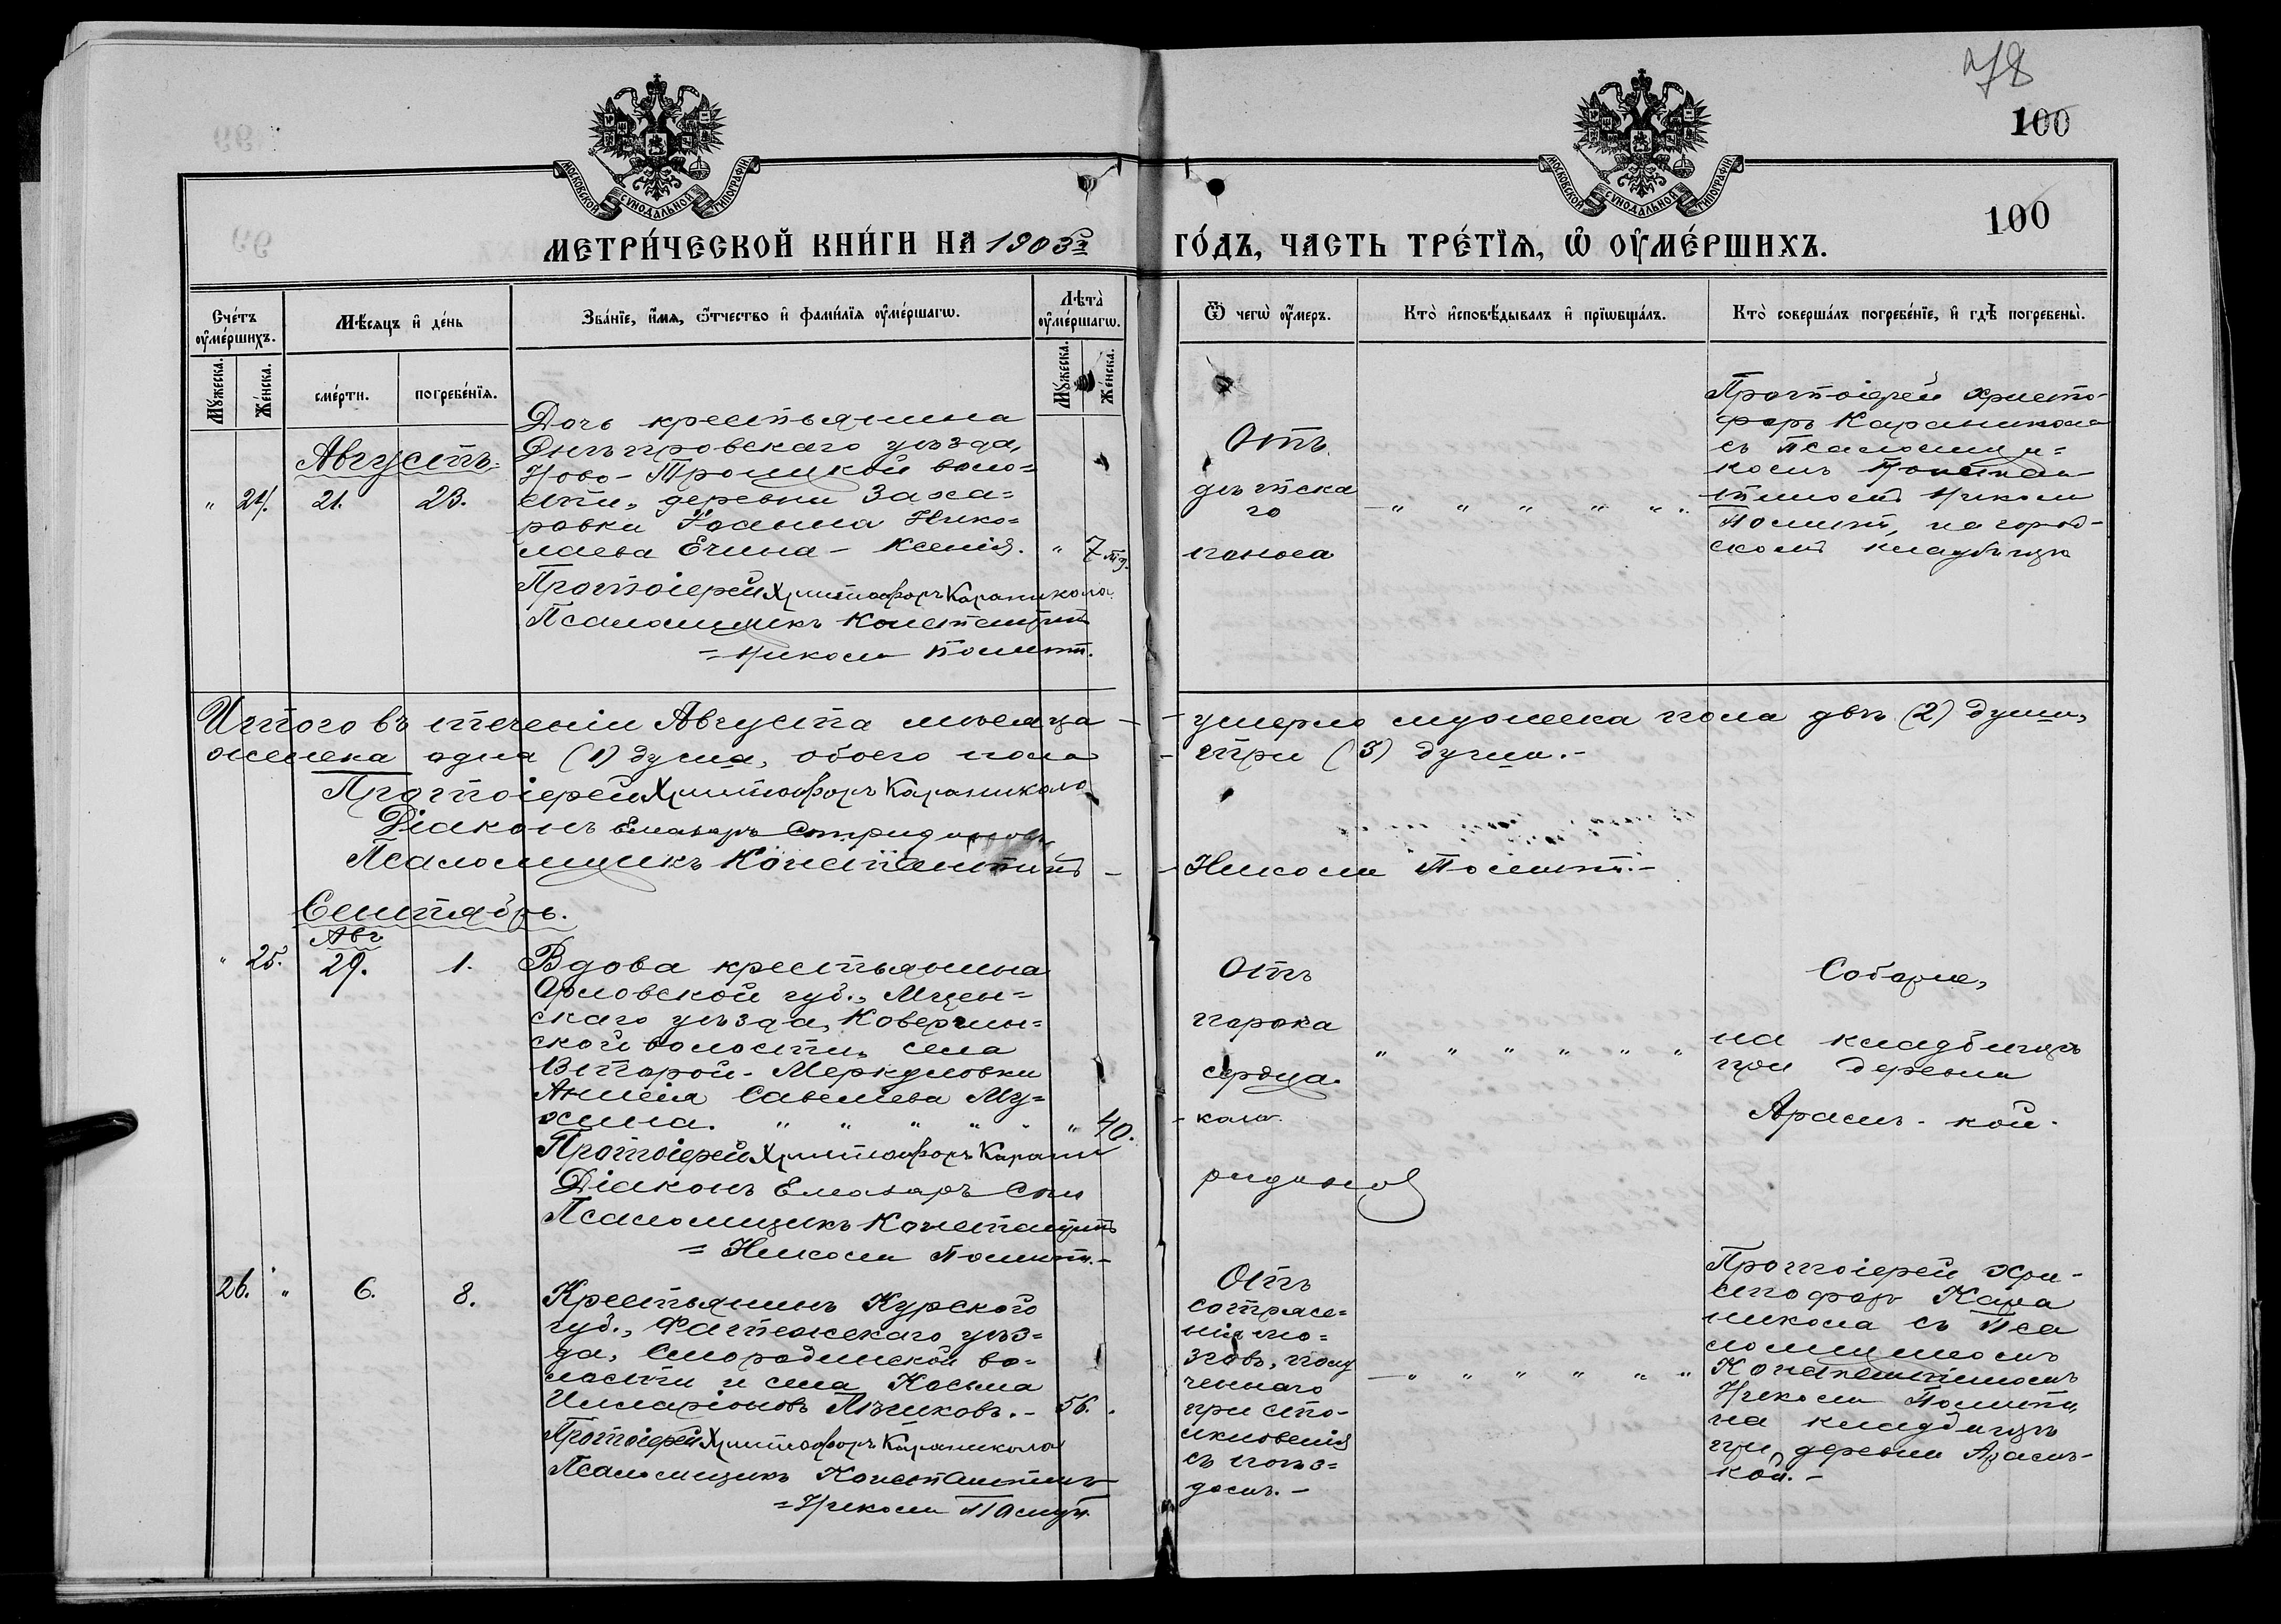 78
100
100
МОСКОВСКОЙ СѴНОДАЛЬНОЙ ТИПОГРАФІИ
МОСКОВСКОЙ СѴНОДАЛЬНОЙ ТИПОГРАФІИ
МЕТРИ́ЧЕСКОЙ КНИ́ГИ НА 1903й
ГО́ДЪ, ЧАСТЬ ТРЕ́ТІѦ, Ѡ҆ ОУ҆МЕ́РШИХЪ.
Сче́тъ
оу҆ме́ршихъ.
Мѣ́сѧцъ и҆ де́нь
Зва́нїе, и҆́мѧ, ѻ҆́тчество и҆ фами́лїѧ оу҆ме́ршагѡ.
Лѣта̀
оу҆ме́ршагѡ.
Мꙋ́жеска.
Же́нска.
сме́рти.
погребе́нїѧ.
Мꙋ́жеска.
Же́нска.
Ѿ чегѡ̀ оу҆́меръ.
Кто̀ и҆сповѣ́дывалъ и҆ прїѡбща́лъ.
Кто̀ соверша́лъ погребе́нїе, и҆ гдѣ̀ погребены̀.
Августъ.
" 24. 21. 23.
Дочь крестьянина
Днѣпровскаго уѣзда,
Ново-Троицкой воло=
сти, деревни Заха=
ровки Іоанна Нико=
лаева Ечина - Ксенія. " 7 м.
Протоіерей Христофоръ Караникола
Псаломщикъ Константинъ
=Николи Полити.
Отъ
дѣтска
го
поноса
" " " " "
Протоіерей Христо-
форъ Караникола
съ псаломщи=
комъ Констан
тиномъ Николи
Полити, на город-
скомъ кладбищѣ
Итого въ теченіи Августа мѣсяца - - умерло мужеска пола двѣ (2) души,
женска одна (1) душа, обоего пола - три (3) души.-
Протоіерей Христофоръ Караникола
Діаконъ Елазаръ Спиридоновъ
Псаломщикъ Константинъ - - Николи Полити.-
Сентябрь.
Авг
" 25. 29. 1.
Вдова крестьянина
Орловской губ., Мцен=
скаго уѣзда, Ковершин=
ской волости, села
Второй-Меркуловки
Анисія Савеліева Му=
хина. " " " " " " 40.
Протоіерей Христофоръ Карани - кола
Діаконъ Елазаръ Спи
ридонов
Псаломщикъ Константинъ
= Николи Полити.-
Отъ
порока
сердца.
" " " " " "
Соборне,
на кладбищѣ
при деревни
Арасъ-кой.
26. " 6. 8.
Крестьянинъ Курской
губ., Фатежскаго уѣз=
да, Смородинской во=
лости и села Косьма
Иларіоновъ Пѣшковъ.- 56.
Протоіерей Христофоръ Караникола
Псаломщикъ Константинъ
=Николи Полити.
Отъ
сотрясе=
нія мо=
зговъ, полу
ченнаго
при сто-
лкновенія
съ поѣз=
домъ.-
" " " " " "
Протоіерей Хри-
стофоръ Кара
никола съ Пса
ломщикомъ
Константиномъ
Николи Полити
на кладбищѣ
при деревни Арасъ-
кой.-